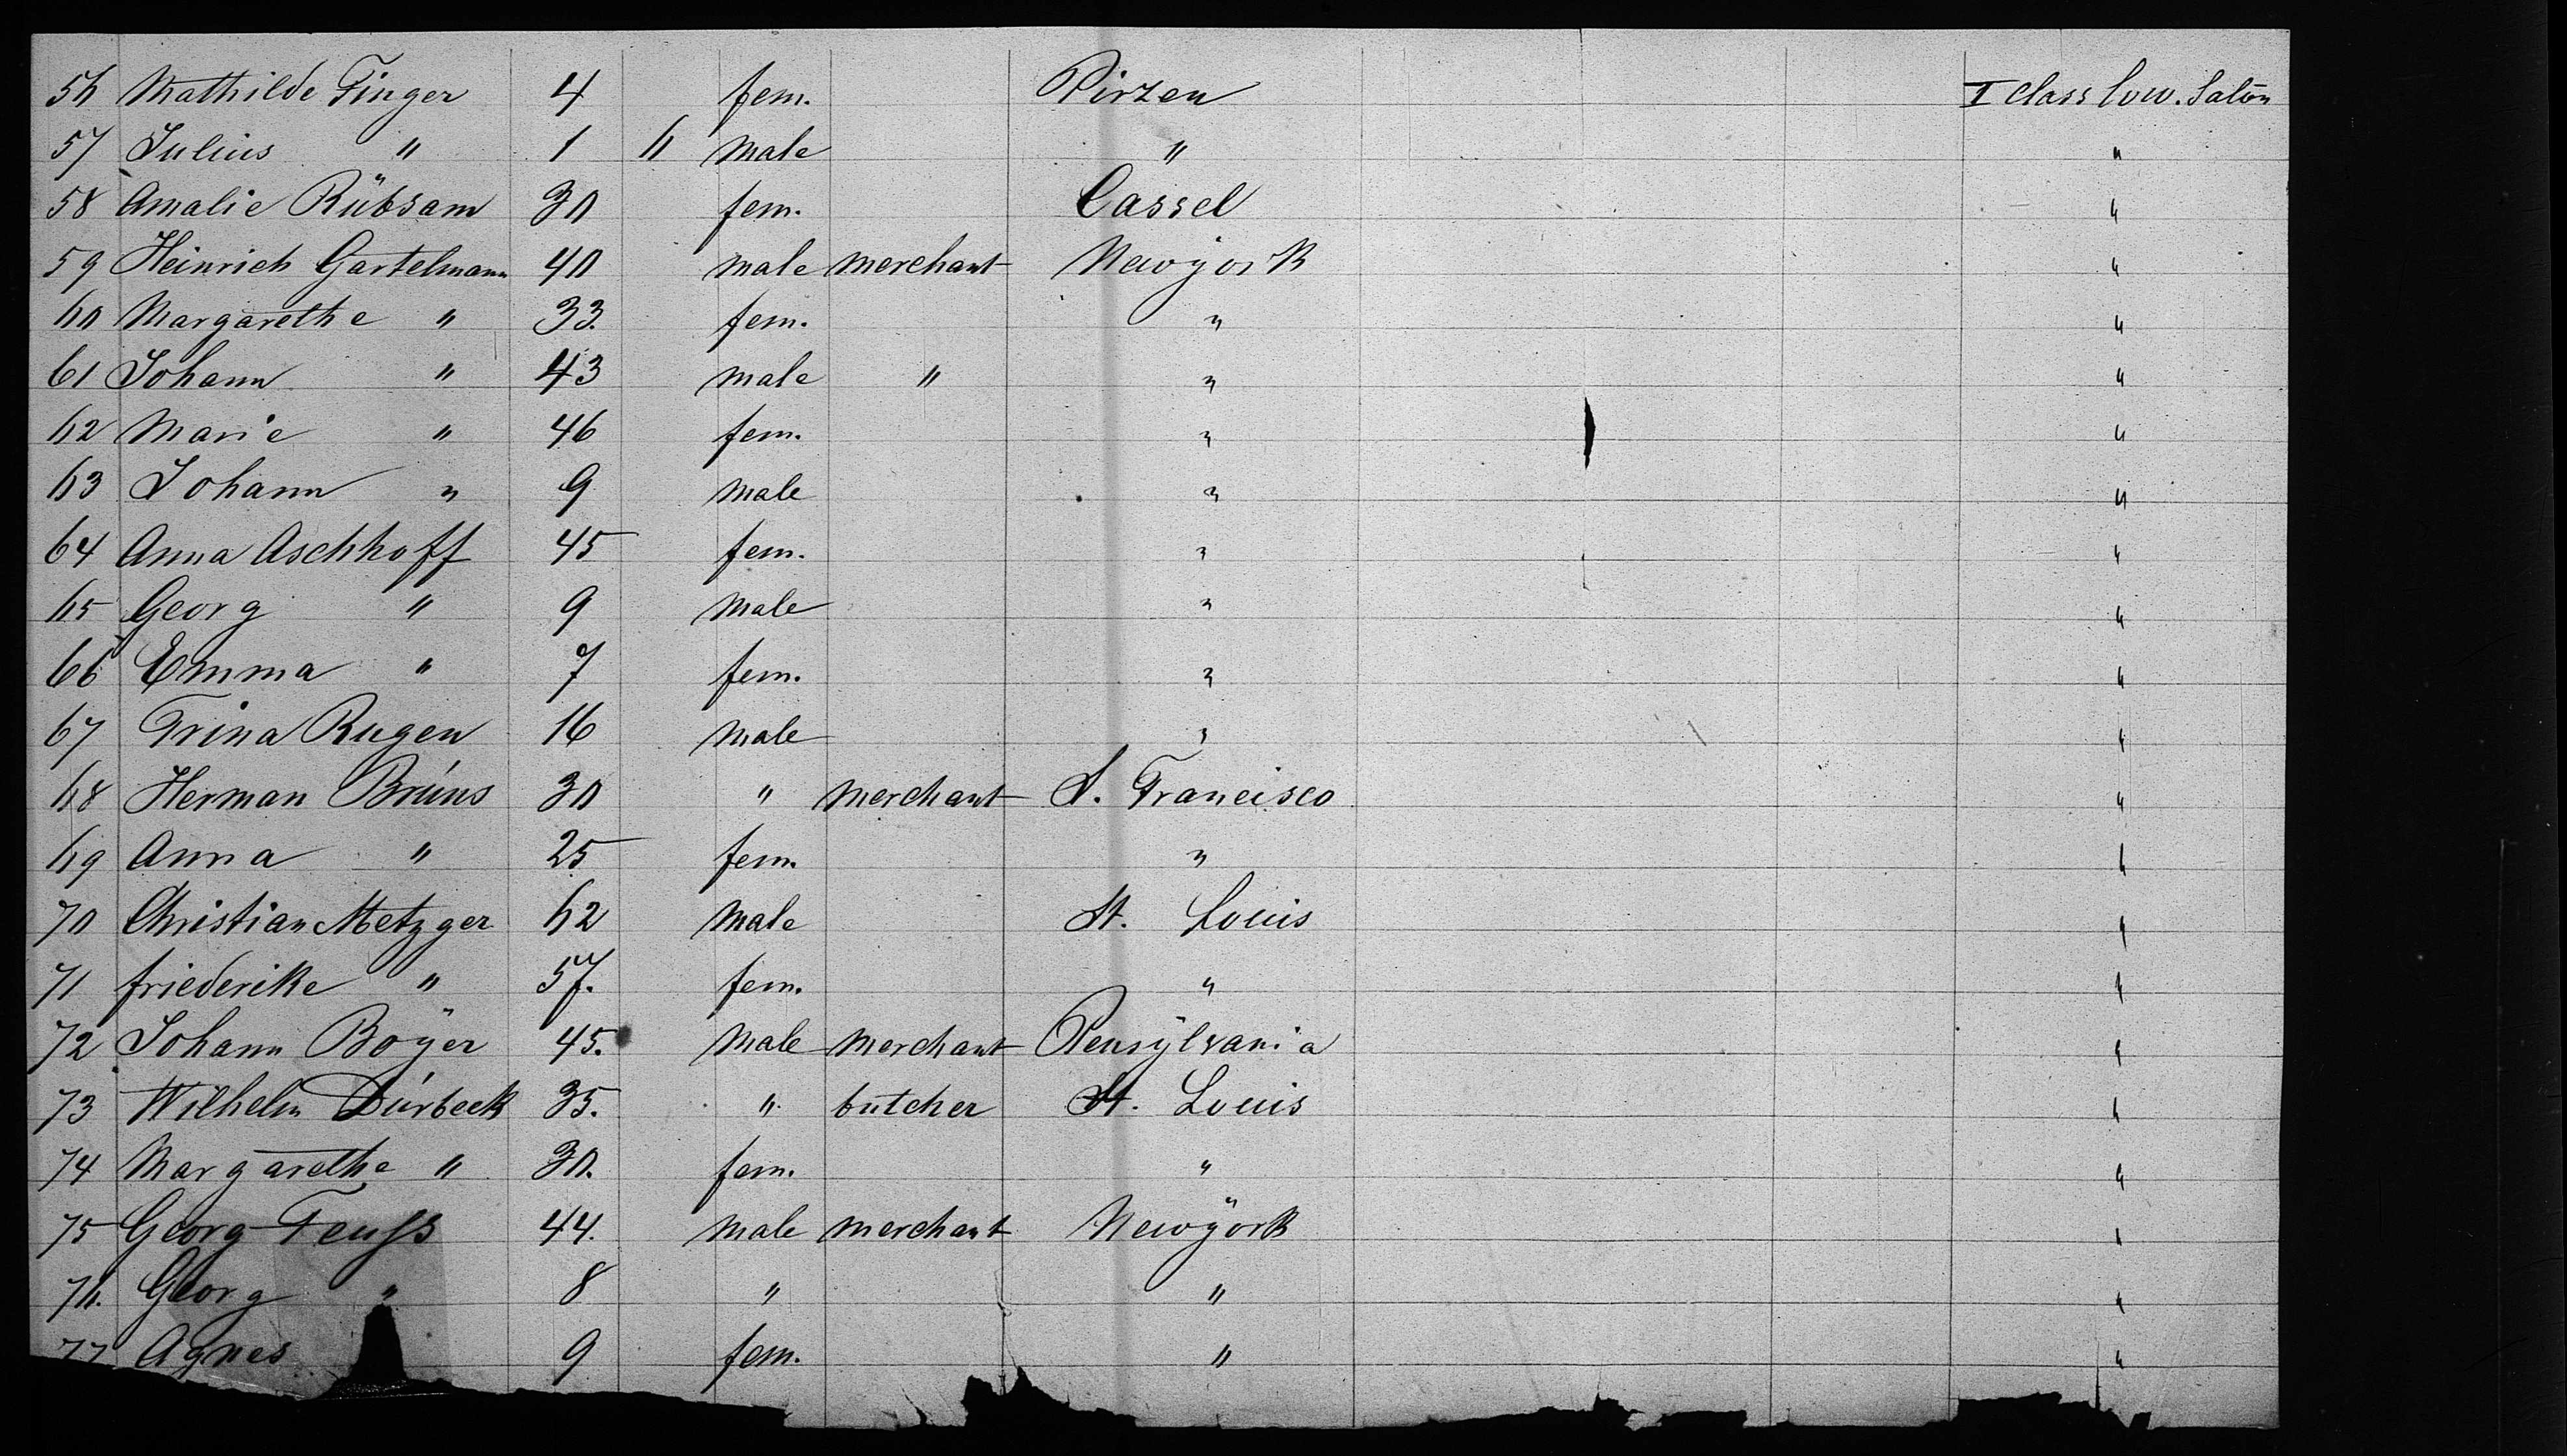 56 Mathilde Finger 4 fem. Pirzen I Class low. Salon
57 Julius " 1 6 male " "
58 Amalie Rübsam 30 fem. Cassel "
59 Heinrich Gartelmann 40 male merchant Newÿork "
60 Margarethe " 33. fem. " "
61 Johann " 43 male " " "
62 Marie " 46 fem. " "
63 Johann " 9 male " "
64 Anna Aschhoff 45 fem. " "
65 Georg " 9 male " "
66 Emma " 7 fem. " "
67 Trina Rugen 16 male " "
68 Herman Brúns 30 " merchant S. Francisco "
69 Anna " 25 fem. " "
70 Christian Metzger 62 male St. Louis "
71 friederike " 57. fem. " "
72 Johann Boÿer 45. male merchant Pensÿlvania "
73 Wilhelm Dúrbeck 35. " butcher St. Louis "
74 Margarethe " 30. fem. " "
75 Georg Feuſs 44. male merchant Newÿork "
76. Georg " 8 " " "
77 Agnes 9 fem. " "